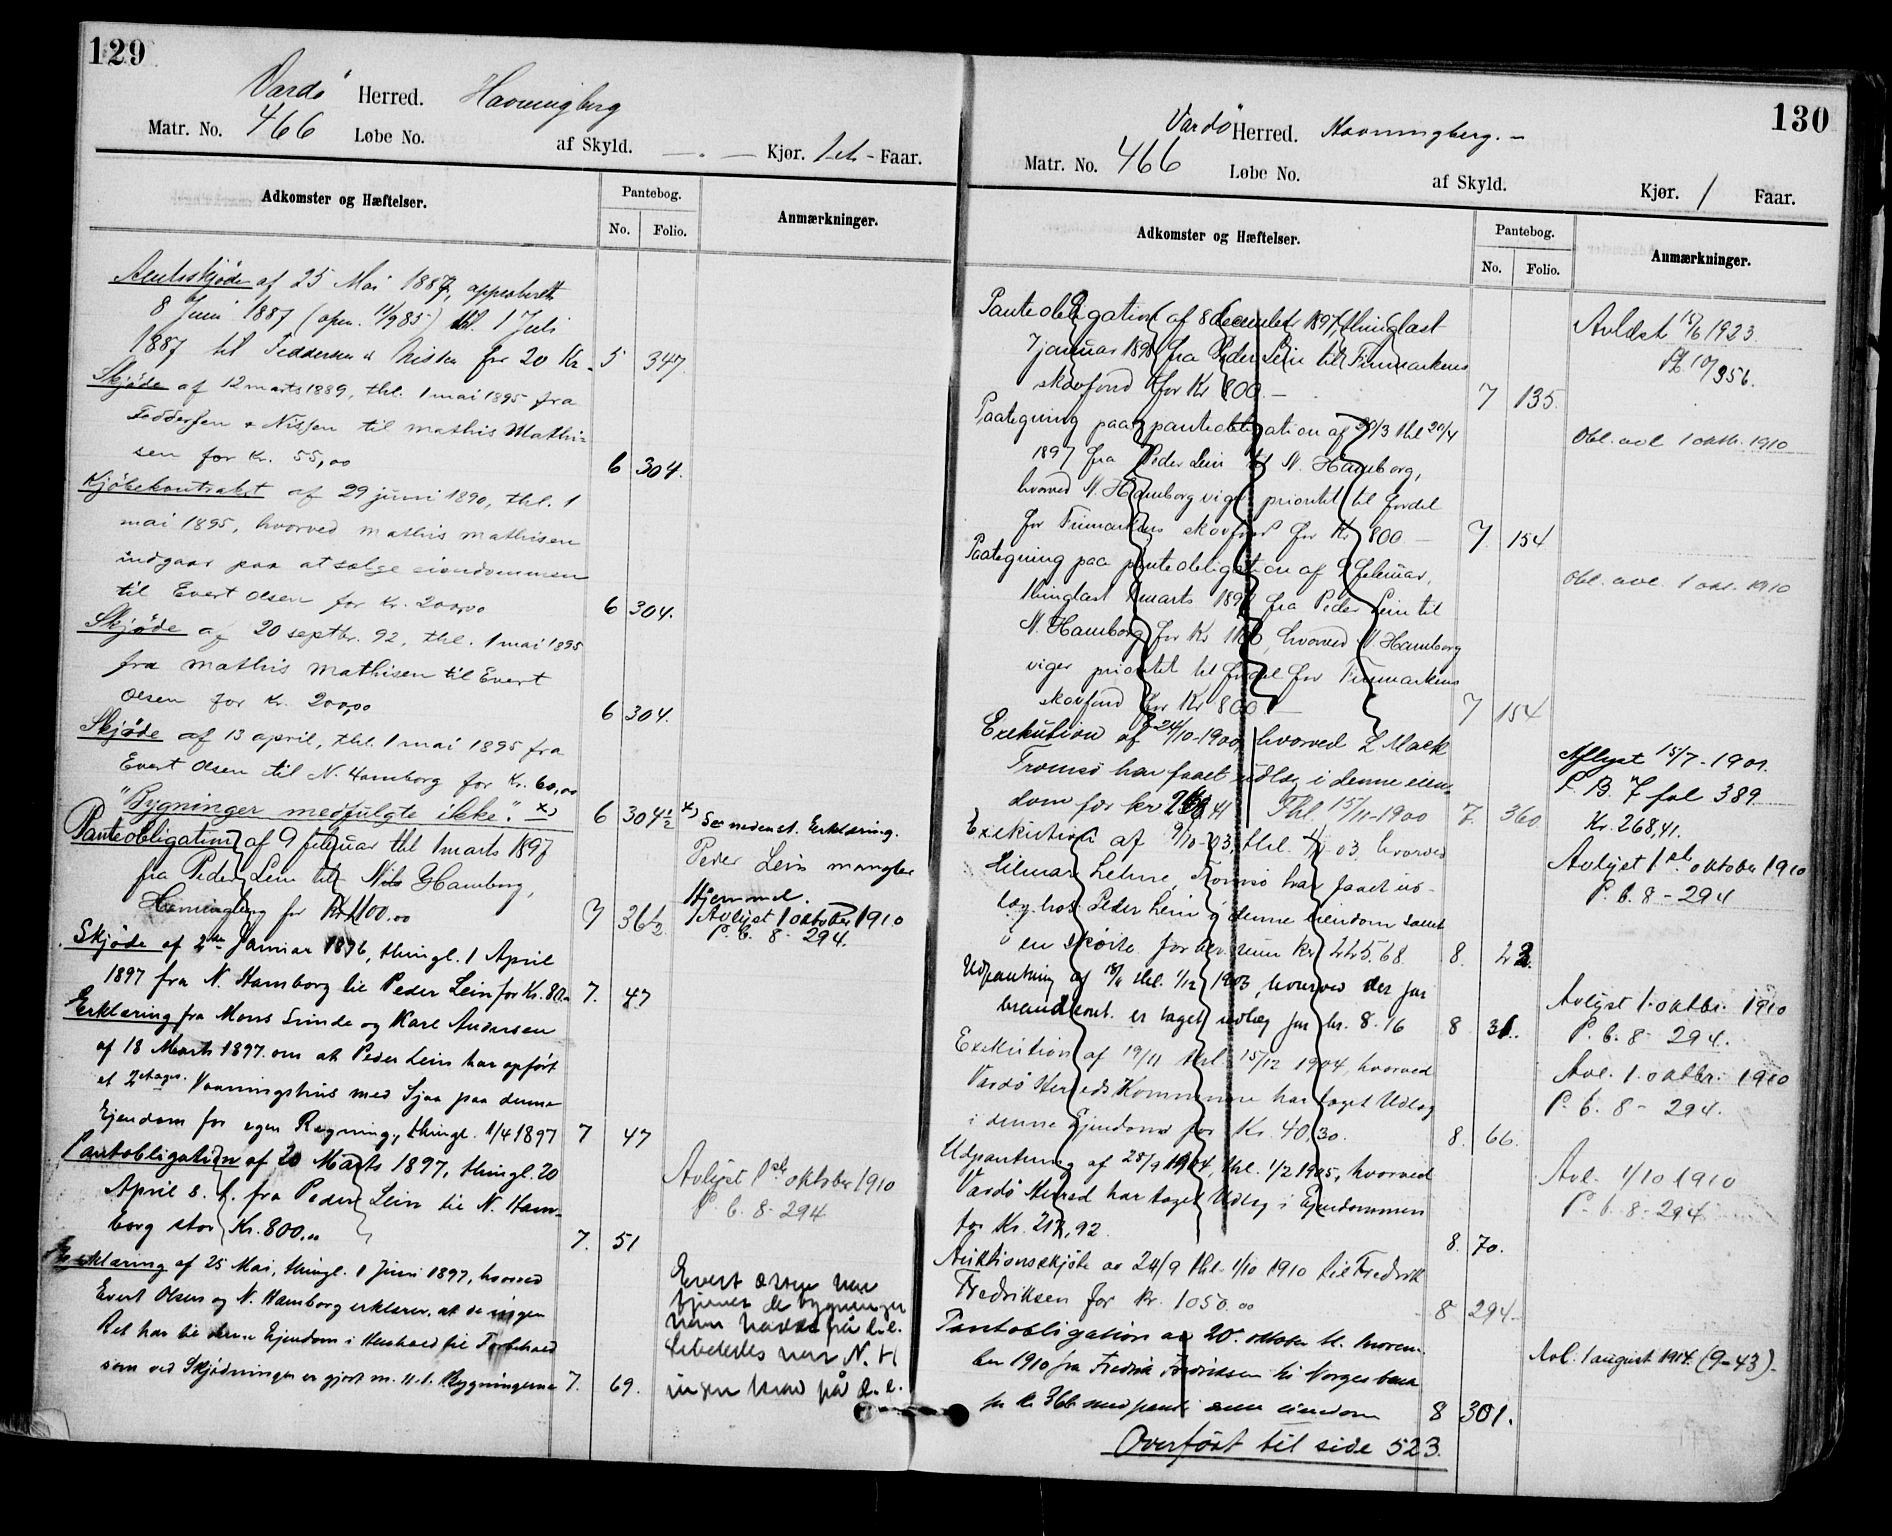 129
Vardø Herred. Havningberg
Matr. No. 466 Løbe No. af Skyld. — . — Kjør. Faar.
Adkomster og Hæftelser. Pantebog. Anmærkninger.
No. Folio.
Amtsskjøde af 25 Mai 1887, approberet
8 Juni 1887 (11/9 85) thl. 1 Juli
1887 til Feddersen & Nissen for 20 Kr. 5 347
Skjøde af 12 marts 1889, thl. 1 mai 1895 fra
Feddersen & Nissen til Mathis Mathi-
sen for Kr. 55,00 6 304.
Kjøbekontrakt af 29 juni 1890, thl. 1
mai 1895, hvorved mathis mathisen
indgaar paa at sælge eiendommen
til Evert Olsen for Kr. 200,00 6 304.
Skjøde af 20 septbr. 92, thl. 1 mai 1895
fra mathis mathisen til Evert
Olsen for Kr. 200,00 6 304.
Skjøde af 13 april, thl. 1 mai 1895 fra
Evert Olsen til N. Hamborg for Kr. 60,00
"Bygninger medfulgte ikke". x) 6 304½ x) Se nedenst. Erklæring.
Panteobligation af 9 februar thl 1 marts 1897 Peder Lein mangler
fra Peder Lein til Nils Hamborg, Hjemmel.
Havningberg for Kr 1100.00 7 36½ Avlyst 1 oktober 1910
P. b. 8 - 294.
Skjøde af 2den Januar 1896, thingl. 1 April
1897 fra N. Hamborg til Peder Lein for Kr. 80.00 7. 47
Erklæring fra Mons Sunde og Karl Andersen
af 18 Marts 1897 om at Peder Lein har opført
et 2 etages Vaaningshus med Sjaa paa denne
Ejendom for egen Regning, thingl. 1/4 1897 7 47
Pantobligation af 20 Marts 1897, thingl. 20 Avlyst 1st oktober 1910
April s. A. fra Peder Lein til N. Ham- P. b. 8 - 294
borg stor Kr. 800.00 7. 51
Erklæring af 25 Mai, thingl. 1 Juni 1897, hvorved Evert Olsen har
Evert Olsen og N. Hamborg erklærer, at de ingen fjernet de bygninger
Ret har til denne Ejendom i Henhold til Forbehold han havde på
som ved Skjødningen er gjort m. H. t. Bygningerne 7. 69. Ligeledes har N. H
ingen krav på

130
Vardø Herred. Havningberg. -
Matr. No. 466 Løbe No. af Skyld. Kjør. / Faar.
Adkomster og Hæftelser. Pantebog. Anmærkninger.
No. Folio.
Panteobligation af 8 december 1897, thinglæst Avlæst 15/6 1923
7 januar 1898 fra Peder Lein til Finmarkens Pb 10/356.
skovfond for Kr 800. - 7 135.
Paategning paa panteobligation af 20/3 thl 20/4 Obl. avl 1 oktb. 1910
1897 fra Peder Lein til N. Hamborg,
hvorved N. Hamborg viger prioritet til fordel
for Finmarkens skovfond for Kr 800 - 7. 154
Paategning paa panteobligation af 9 februar, Obl. avl. 1 okt. 1910
thinglæst 1 marts 1897 fra Peder Lein til
N. Hamborg for Kr 1100, hvorved N. Hamborg
viger prioritet til fordel for Finmarkens
skovfond for Kr 800 - 7 154
Exekution af 24/10-1900, hvorved L Mack Aflyst 15/7 - 1901.
Tromsø har faaet udlæg i denne eien- P. B. 7 fol 389
dom for kr 268,41 Thl. 15/11-1900 7. 360 Kr. 268,41.
Exekution af 9/10-03, thl. 03 hvorved Avlyst 1st oktober 1910
Hilmar Lehne, Tromsø har faaet ud- P. b. 8 - 294
læg hos Peder Lein i denne eiendom samt
i en skøite for kr 8.
Udpantning af thl. 1/12 1903, hvorved der for Avlyst 1. oktbr. 1910
brandkont. er taget udlæg for kr. 8.16 8 31. P. b. 8 - 294.
Exekution af 19/11 thl. 15/12 1904, hvorved Avl. 1. oktbr. 1910
Vardø Herreds Kommune har taget Udlæg P. b. 8 - 294.
i denne Ejendom for Kr. 40,30. 8. 66.
Udpantning af 28/9 1904, thl. 1/2 1905, hvorved Avl. 1/10 1910
Vardø Herred har taget Udlæg i Ejendommen P. b. 8 - 294
for Kr. 92. 8. 70.
Auktionsskjøte av 24/9 thl. 1/10 1910 til Fredrik
Fredriksen for kr. 1050.00 8 294
Pantobligation av 20. oktober tl. novem-
ber 1910 fra Fredrik Fredriksen til Norges bank Avl. 1 august 1914. (9-43)-
for kr. 366 med pant i denne eiendom 8 301.
Overført til side 523.